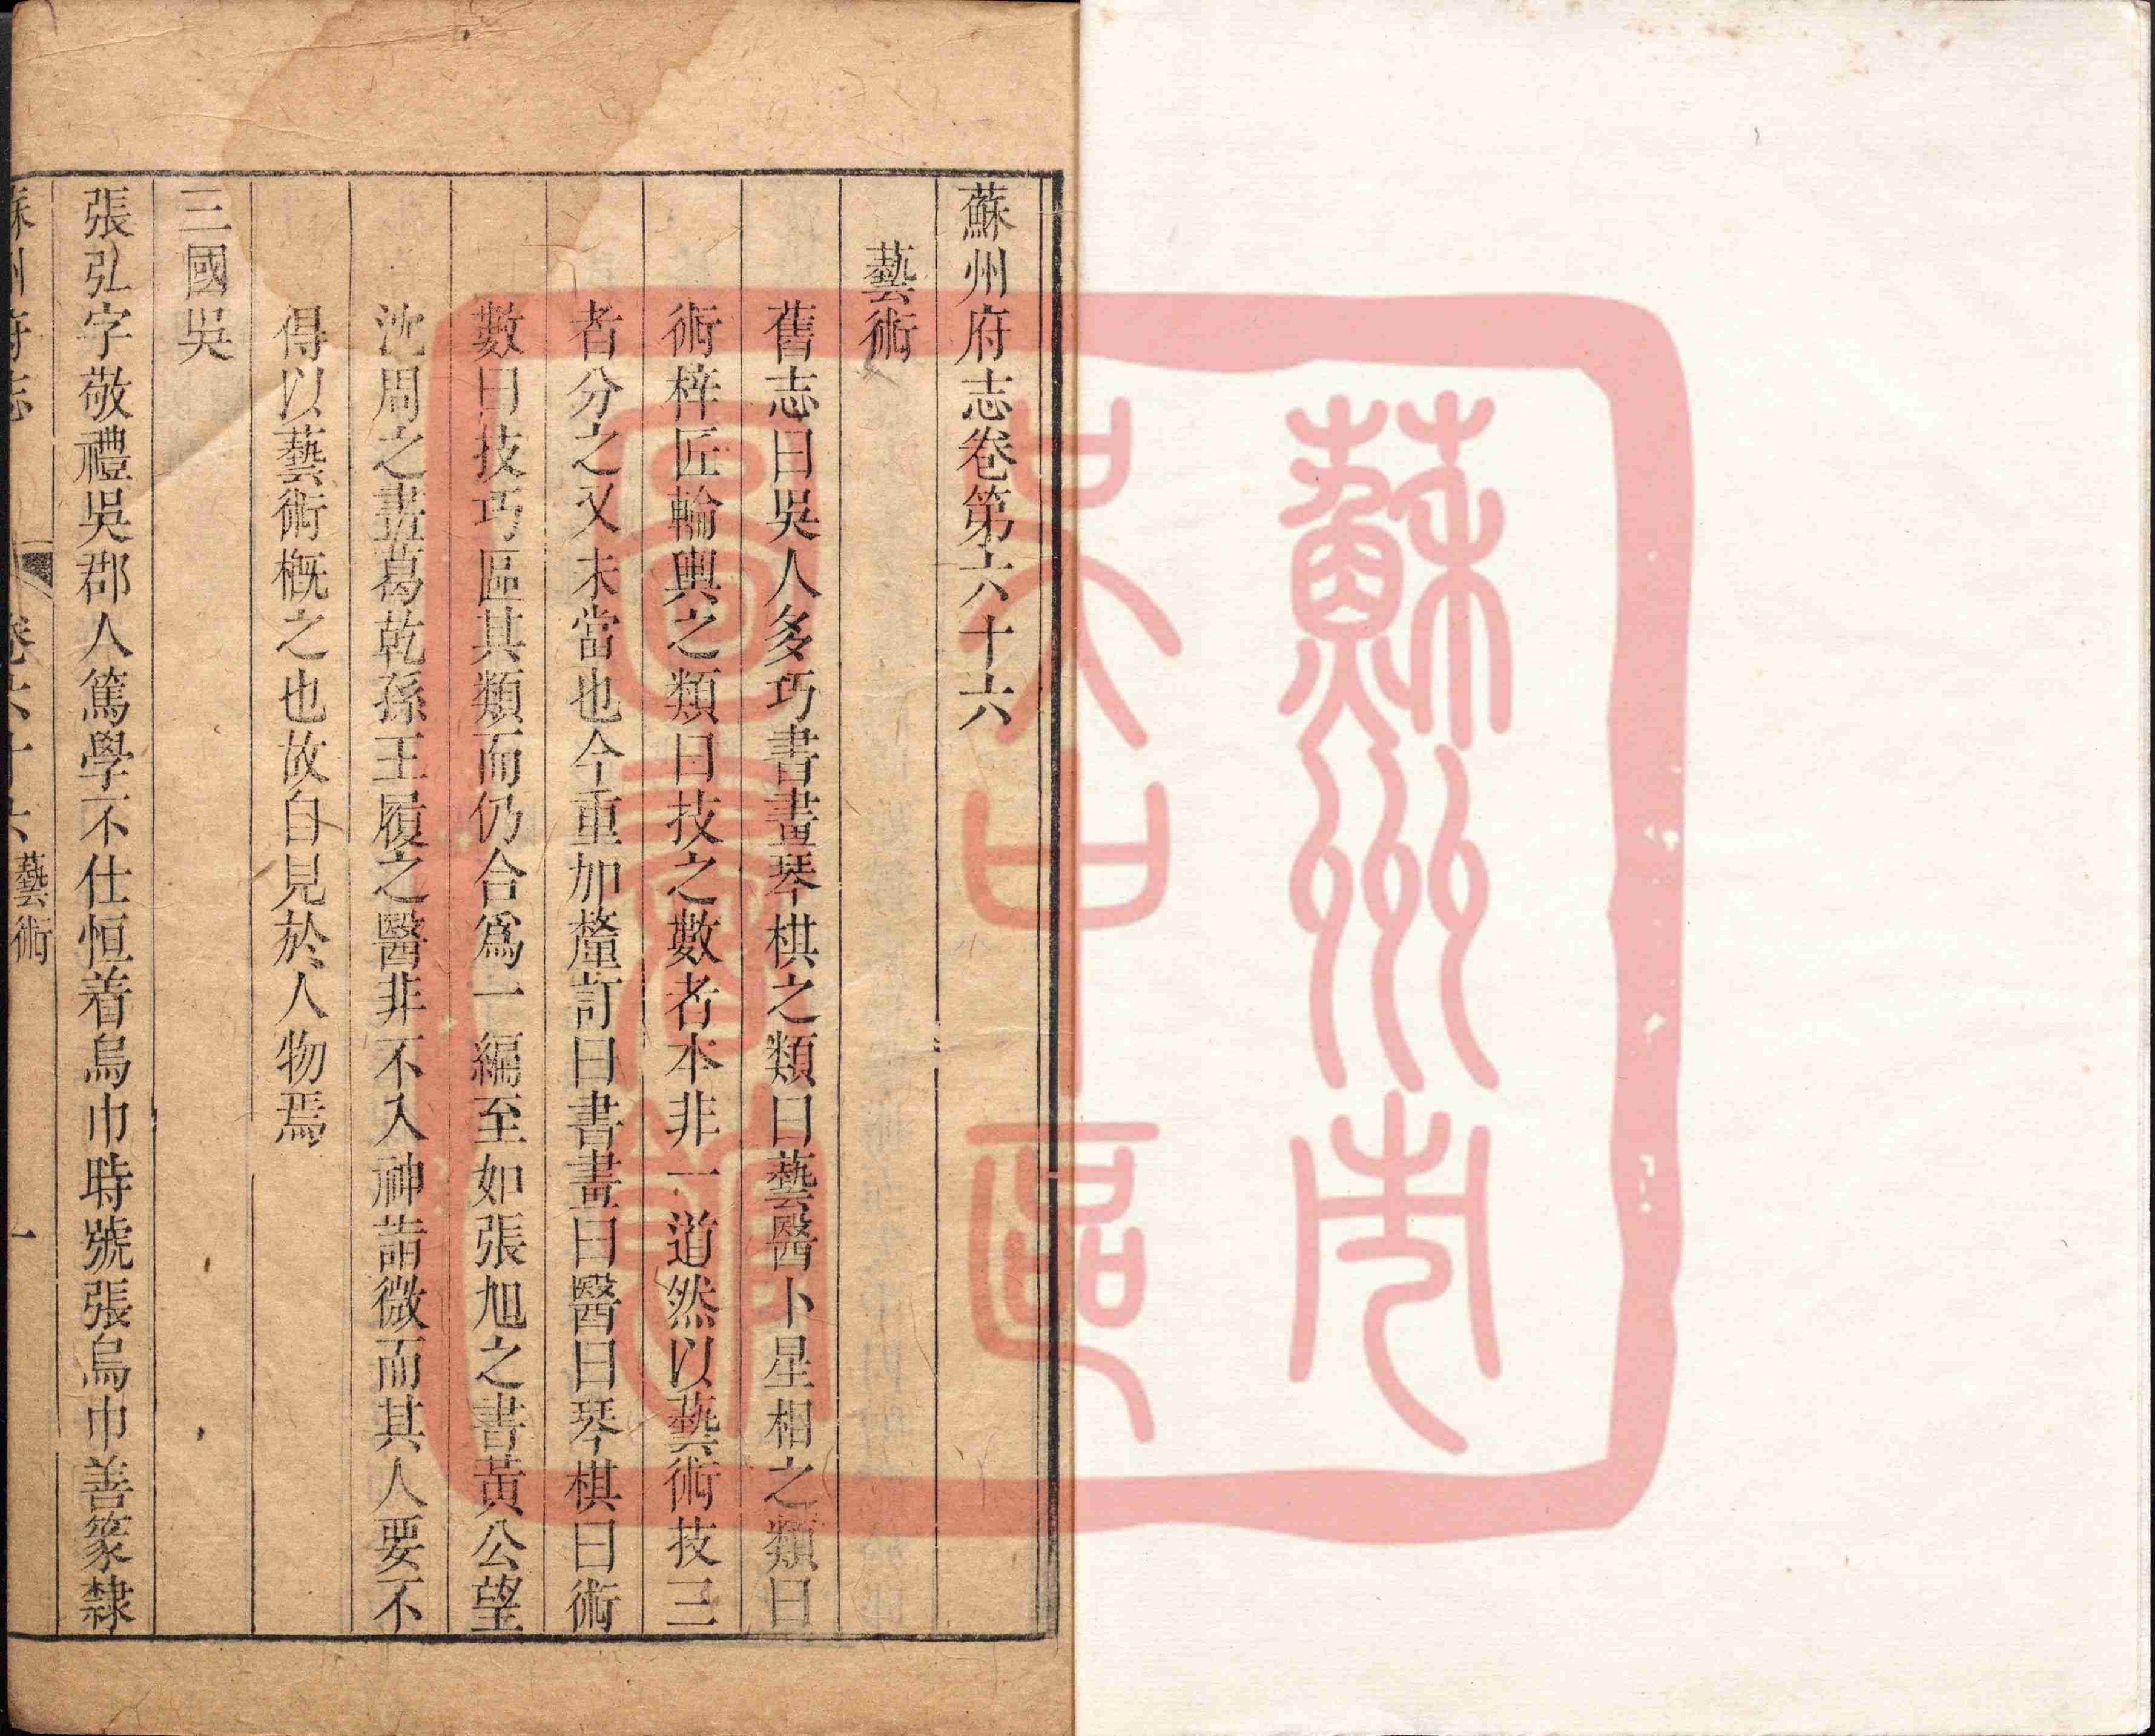 蘇州府志卷第六十六
藝術
舊志曰吳人多巧書畫琴棋之類曰藝醫卜星相之類曰
術梓匠輪輿之類曰技之數者本非一道然以藝術技三
者分之又未當也今重加釐訂曰書畫曰醫曰琴棋曰術
數曰技巧區其類而仍合爲一編至如張旭之書黃公望
沈周之畫葛乾孫王履之醫非不入神詣微而其人要不
得以藝術概之也故自見於人物焉
三國吳
張弘字敬禮吳郡人篤學不仕恒着烏巾時號張烏巾善篆隸
蘇州府志 卷六十六 藝術 一